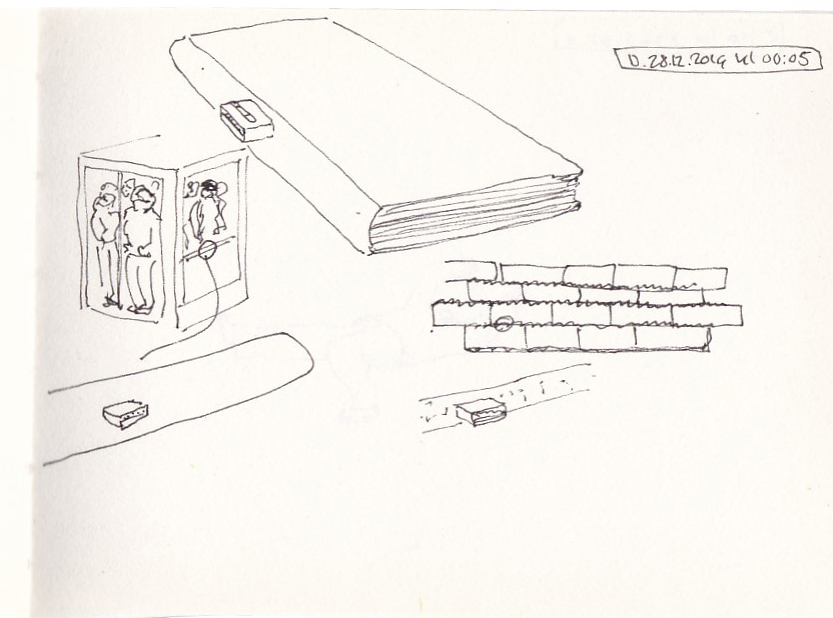 D. 28.12.2019 kl 00:05